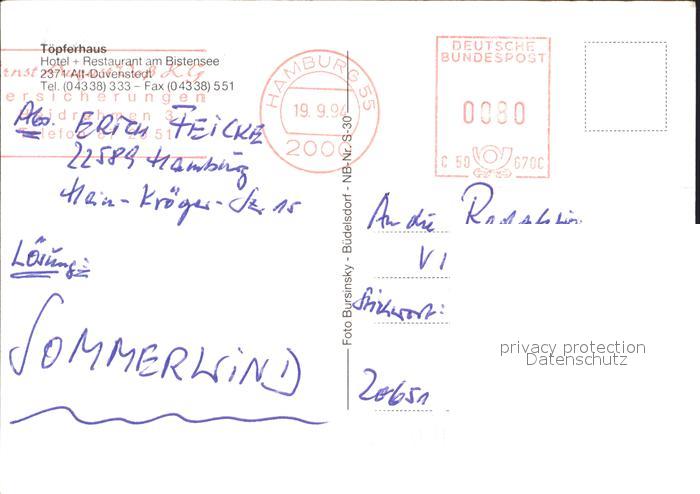 Töpferhaus
Hotel + Restaurant am Bistensee
2371 Alt-Duvenstedt
Tel. (04338) 333 – Fax (04338) 551
ersicherungen
HAMBURG 55
19.9.94
2000
DEUTSCHE
BUNDESPOST
0080
C 50 670C
Abs. ERICH FEICKE
22589 Hamburg
Hein-Kröger-Str. 15
Lösung:
SOMMERWIND
Foto Bursinsky - Büdelsdorf - NB-Nr. S-30
An die Redaktion
VI
Stichwort:
20651
privacy protection
Datenschutz